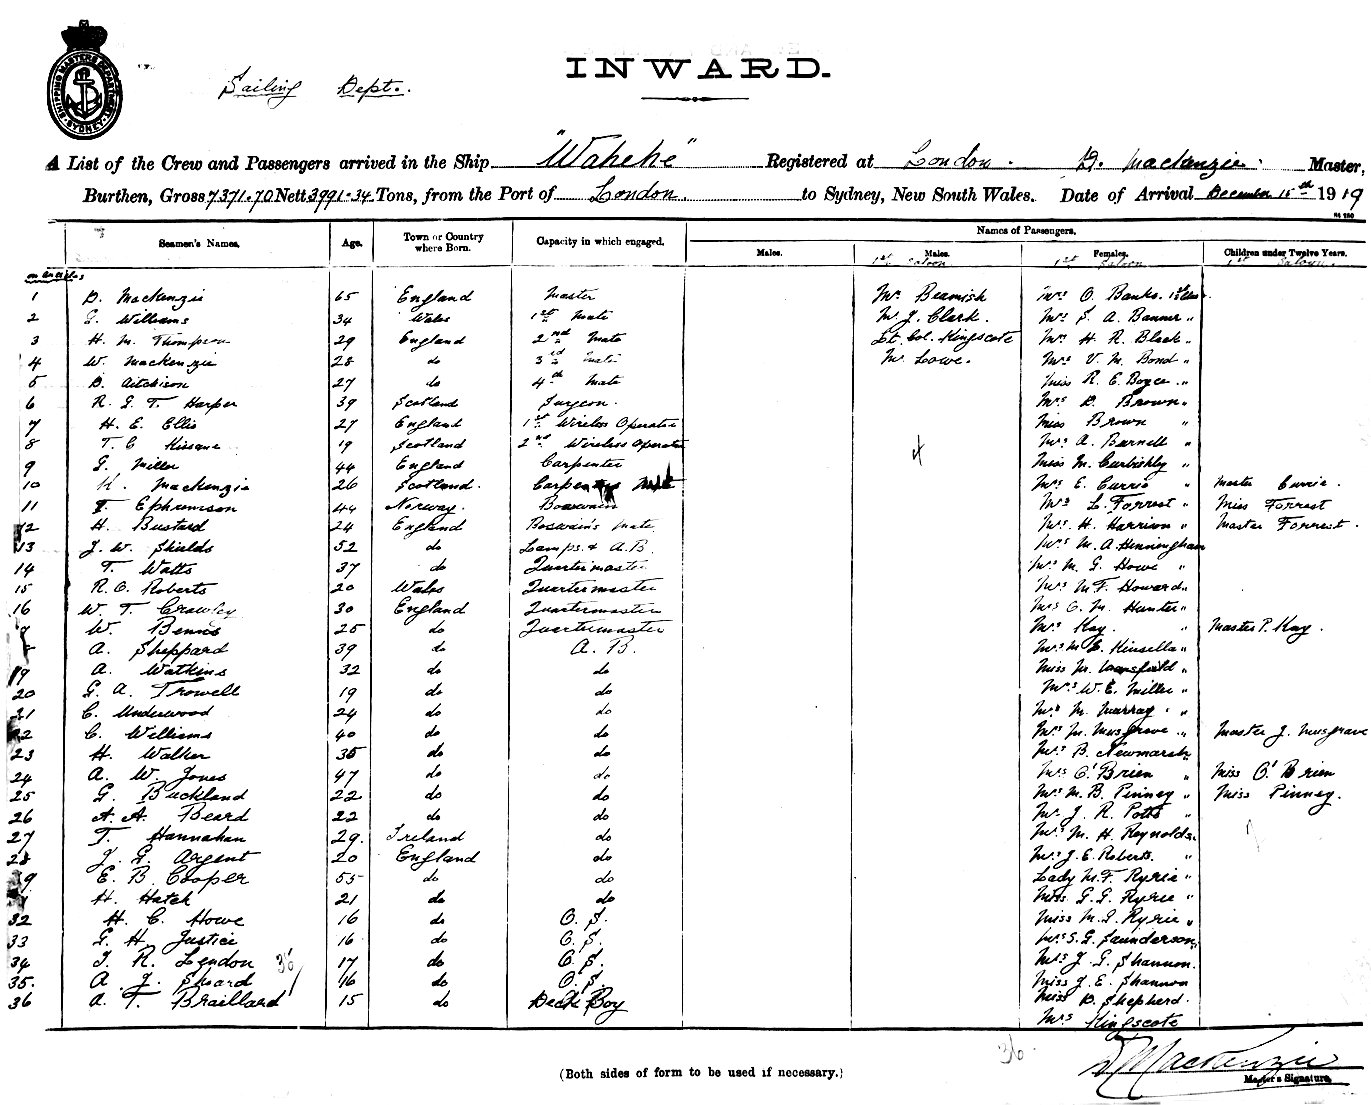 SHIPPING MASTERS DEPARTMENT SYDNEY
Sailing Dept.
INWARD.
A List of the Crew and Passengers arrived in the Ship "Waheke" Registered at London. D. Mackenzie. Master,
Burthen, Gross 7371.70 Nett 3991.34 Tons, from the Port of London. to Sydney, New South Wales. Date of Arrival December 15th 1919
Names of Passengers.
Seamen's Names. Age. Town or Country where Born. Capacity in which engaged. Males. Males. Females. Children under Twelve Years.
1st Saloon 1st Saloon 1st Saloon
1 D. Mackenzie 65 England Master Mr Beamish Mrs O. Banks. 1st Class.
2 Williams 34 Wales 1st Mate Mr J. Clark. Mrs S. A. Banner "
3 H. M. Thompson 29 England 2nd Mate Lt. Col. Kingscote Mrs H. R. Black "
4 W. Mackenzie 28 do 3rd Mate Mr Lowe. Mrs V. M. Bond "
5 D. Aitchison 27 do 4th Mate Miss R. E. Boyce "
6 R. G. T. Harper 39 Scotland Surgeon. Mrs D. Brown "
7 H. E. Ellis 27 England 1st Wireless Operator Miss Brown "
8 T. C Kissane 19 Scotland 2nd Wireless Operator Mrs A. Burnell "
9 G. Miller 44 England Carpenter 4 Miss M. Curbishly "
10 K. Mackenzie 26 Scotland. Carpenters Mate Mrs E. Currie " Master Currie.
11 T. Ephrumson 44 Norway. Boswain Mrs L. Forrest " Miss Forrest
12 H. Bustard 24 England Boswain's Mate Mrs H. Harrison " Master Forrest.
13 J. W. Shields 52 do Lamps. & A.B. Mrs M. A. Henningham
14 T. Watts 37 do Quartermaster Mrs M. G. Howe "
15 R. O. Roberts 20 Wales Quartermaster Mrs M. F. Howard "
16 W. T. Crawley 30 England Quartermaster Mrs C. M. Hunter "
W. Bennis 25 do Quartermaster Mrs Kay. " Master P. Kay.
A. Sheppard 39 do A. B. Mrs M. E. Kinsella "
19 A. Watkins 32 do do Miss M. "
20 G. A. Trowell 19 do do Mrs W. E. Miller "
21 C. Underwood 24 do do Mrs M. Murray "
22 C. Williams 40 do do Mrs M. Musgrove " Master J. Musgrave
23 H. Walker 35 do do Mrs B. Newmarch "
24 A. W. Jones 47 do do Mrs O'Brien " Miss O'Brien
25 G. Buckland 22 do do Mrs M. B. Pinney " Miss Pinney.
26 A. A. Beard 22 do do Mr J. R. Potts "
27 T. Hannahan 29. Ireland do Mrs M. H. Reynolds " 9
28 J. G. Argent 20 England do Mrs J. E. Roberts. "
E. B. Cooper 55 do do Lady M. F. Ryrie "
H. Hatch 21 do do Miss G. G. Ryrie "
32 H. C. Howe 16 do O. S. Miss M. J. Ryrie "
33 G. H. Justice 16 do O. S. Mrs S. G. Saunderson "
34 J. R. Lendon 17 do O. S. Mrs J. G. Shannon.
35. A. J. Sheard 16 do O. S. Miss J. E. Shannon
36 A. T. Braillard 15 do Deck Boy Miss D. Shepherd.
36/ Mrs Kingscote
36.
D Mackenzie
Master's Signature.
(Both sides of form to be used if necessary.)